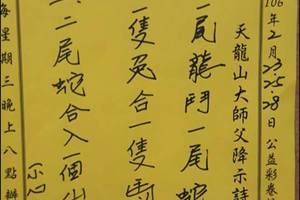 106年2月23.25.28日公益彩券
天龍山大師父降示詩
一尾龍鬥一尾蛇
一隻兔合一隻馬
二尾蛇合入一個
每星期三晚上八點辦